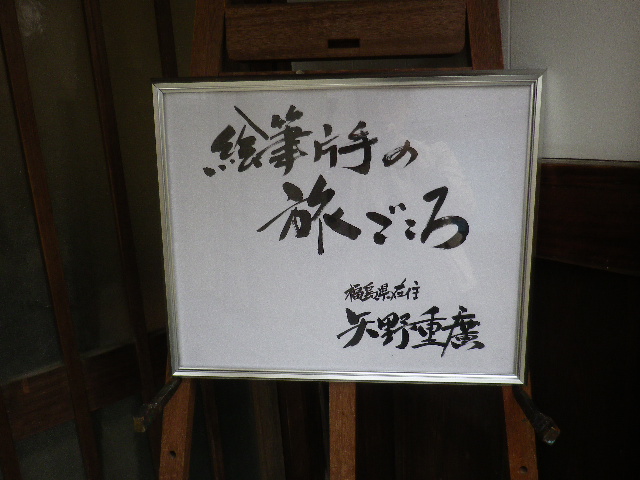 絵筆片手の
旅ごころ
福島県在住
矢野重廣